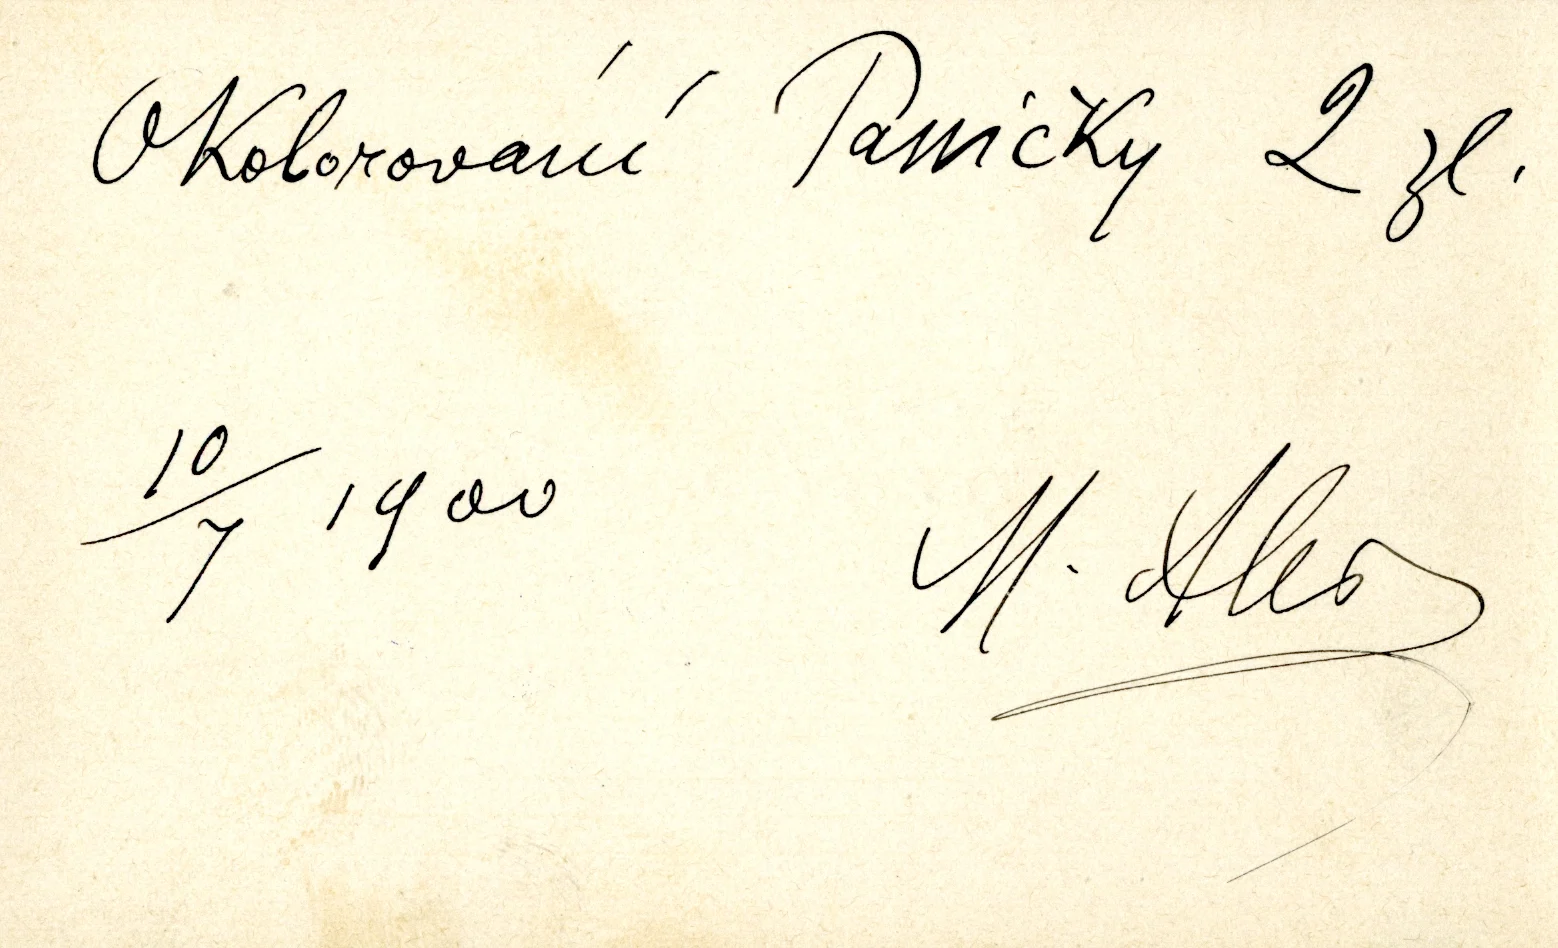 Okolorování Paničky 2 zl.
10/7 1900
M. Aleš